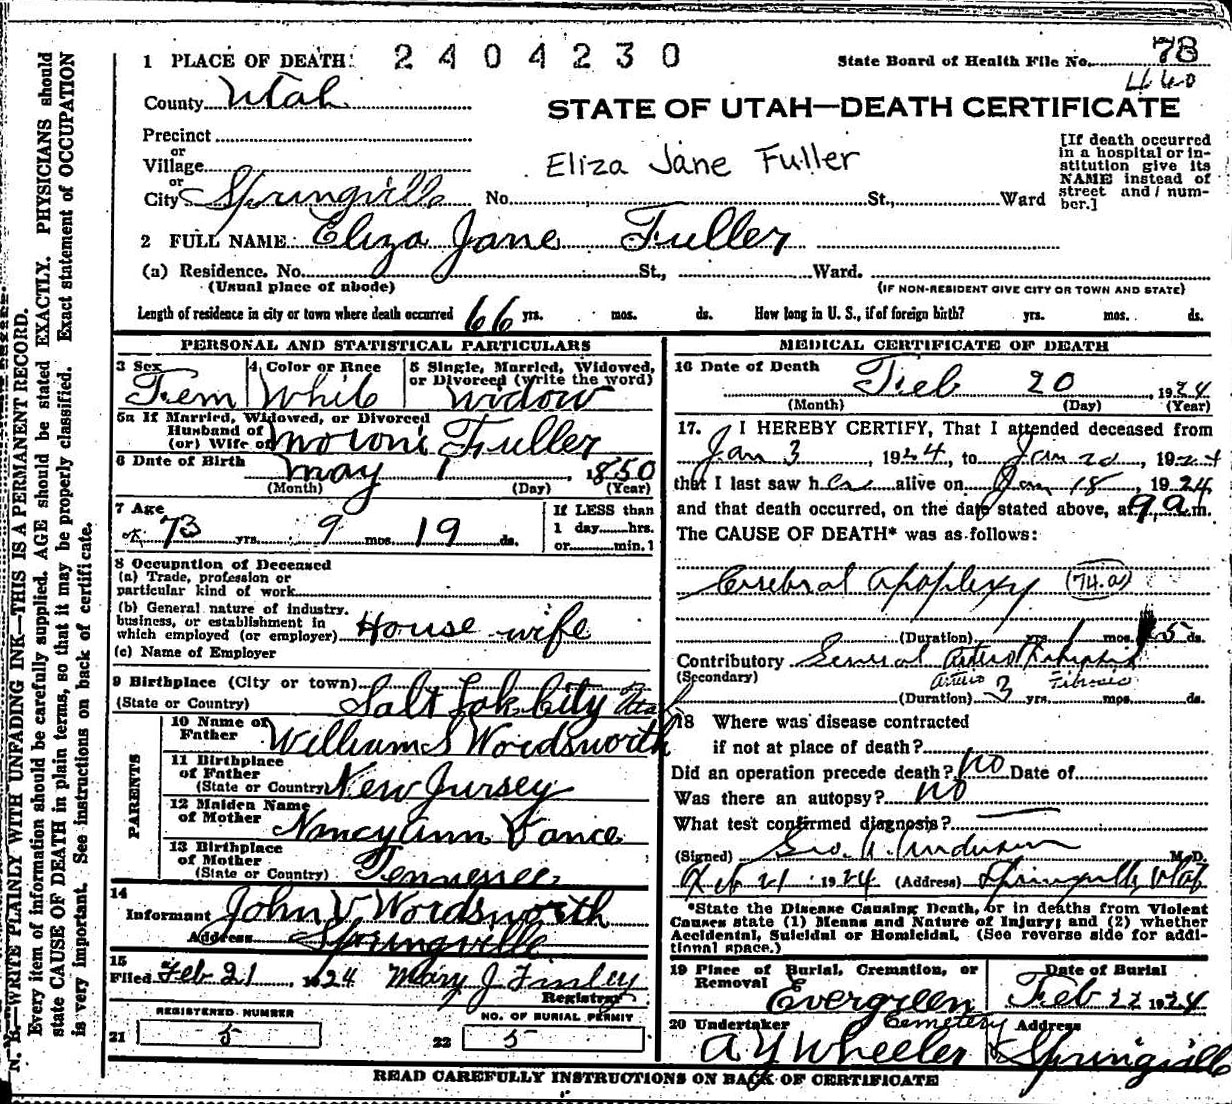 1 PLACE OF DEATH: 2 4 0 4 2 3 0 State Board of Health File No. 78
440
County Utah
STATE OF UTAH—DEATH CERTIFICATE
Precinct
or
Village
Eliza Jane Fuller
[If death occurred in a hospital or institution give its NAME instead of street and / number.]
or
City Springville No. St., Ward
2 FULL NAME Eliza Jane Fuller
(a) Residence. No. St., Ward.
(Usual place of abode) (IF NON-RESIDENT GIVE CITY OR TOWN AND STATE)
Length of residence in city or town where death occurred 66 yrs. mos. ds. How long in U. S., if of foreign birth? yrs. mos. ds.
PERSONAL AND STATISTICAL PARTICULARS
3 Sex 4 Color or Race 5 Single, Married, Widowed, or Divorced (write the word)
Fem White Widow
5a If Married, Widowed, or Divorced
Husband of
(or) Wife of Moroni Fuller
6 Date of Birth May 1, 1850
(Month) (Day) (Year)
7 Age 73 yrs. 9 mos 19 ds.
If LESS than
1 day hrs.
or min.
8 Occupation of Deceased
(a) Trade, profession or
particular kind of work
(b) General nature of industry.
business, or establishment in
which employed (or employer) House wife
(c) Name of Employer
9 Birthplace (City or town)
(State or Country) Salt Lak City Utah
PARENTS
10 Name of
Father William S Wordsworth
11 Birthplace
of Father
(State or Country) New Jursey
12 Maiden Name
of Mother Nancy Ann Vance
13 Birthplace
of Mother
(State or Country) Tennessee
14
Informant John V Wordsworth
Address Springville
15
Filed Feb 21 1924 Mary J Finley
Registrar
REGISTERED NUMBER NO. OF BURIAL PERMIT
21 5 22 5
MEDICAL CERTIFICATE OF DEATH
16 Date of Death Feb 20, 1924
(Month) (Day) (Year)
17. I HEREBY CERTIFY, That I attended deceased from
Jan 3, 1924, to Jan 20, 1924
that I last saw her alive on Jan 18, 1924
and that death occurred, on the date stated above, at 9 a.m.
The CAUSE OF DEATH* was as follows:
Cerebral Apoplexy (74.a)
(Duration) yrs. 1 mos. 15 ds.
Contributory General Arterio
(Secondary) Arterio Fibrosis
(Duration) 3 yrs. mos. ds.
18 Where was disease contracted
if not at place of death?
Did an operation precede death? no Date of
Was there an autopsy? no
What test confirmed diagnosis? —
(Signed) Geo. A. Anderson M.D.
Feb 21 1924 (Address) Springville, Utah
*State the Disease Causing Death, or in deaths from Violent
Causes state (1) Means and Nature of Injury; and (2) whether
Accidental, Suicidal or Homicidal. (See reverse side for addi-
tional space.)
19 Place of Burial, Cremation, or Removal Date of Burial
Evergreen Feb 22 1924
Cemetery
20 Undertaker Address
A Y Wheeler Springville
READ CAREFULLY INSTRUCTIONS ON BACK OF CERTIFICATE
N. B.—WRITE PLAINLY WITH UNFADING INK—THIS IS A PERMANENT RECORD.
Every item of information should be carefully supplied. AGE should be stated EXACTLY. PHYSICIANS should
state CAUSE OF DEATH in plain terms, so that it may be properly classified. Exact statement of OCCUPATION
is very important. See instructions on back of certificate.